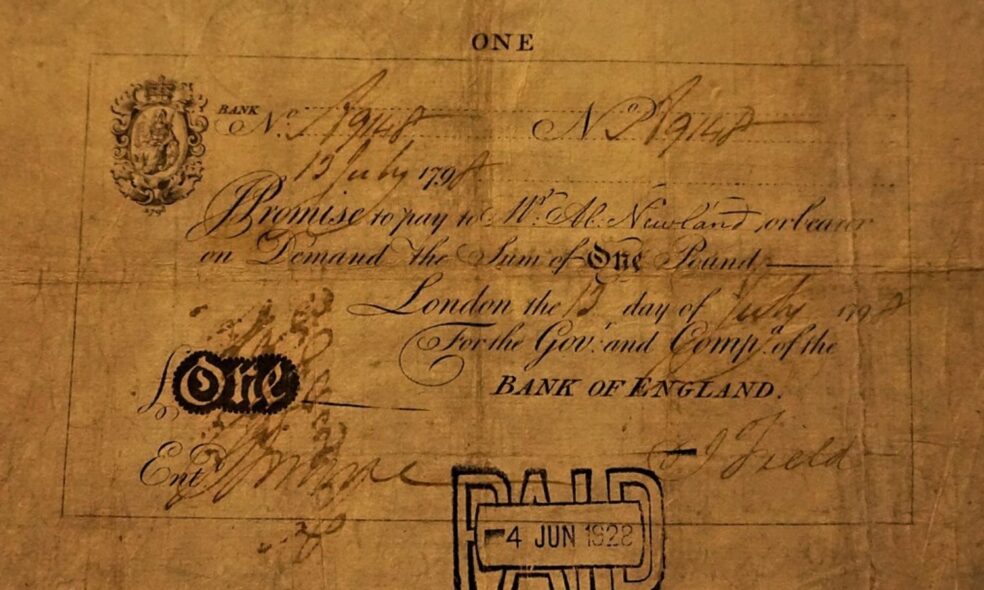 ONE
BANK No. A9148 No. A9148
13 July 1798
Promise to pay to Mr. Ab. Newland, or bearer
on Demand the Sum of One Pound
London the 13 day of July 1798
For the Govr. and Compa. of the
BANK OF ENGLAND.
£One
Entd. J Field
PAID
-4 JUN 1928